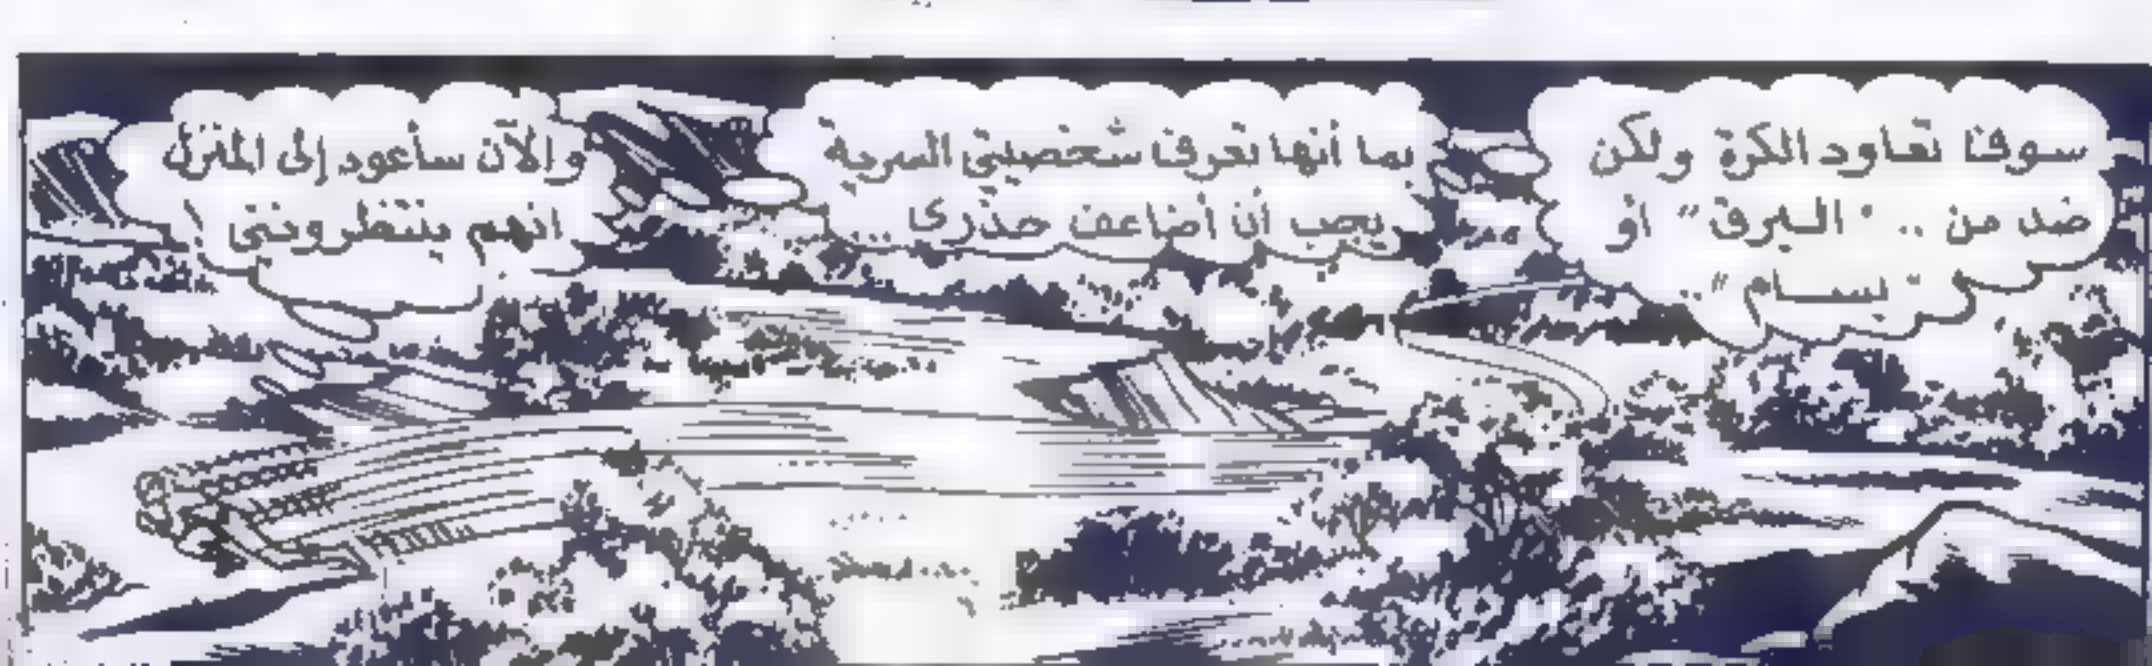 سوف تعاود الكرة ولكن
ضد من .. " البرق " او
" بسام " ..
بما أنها تعرف شخصيتي السرية
يجب أن أضاعف حذرى ...
والآن سأعود إلى المنزل
انهم ينتظروننى